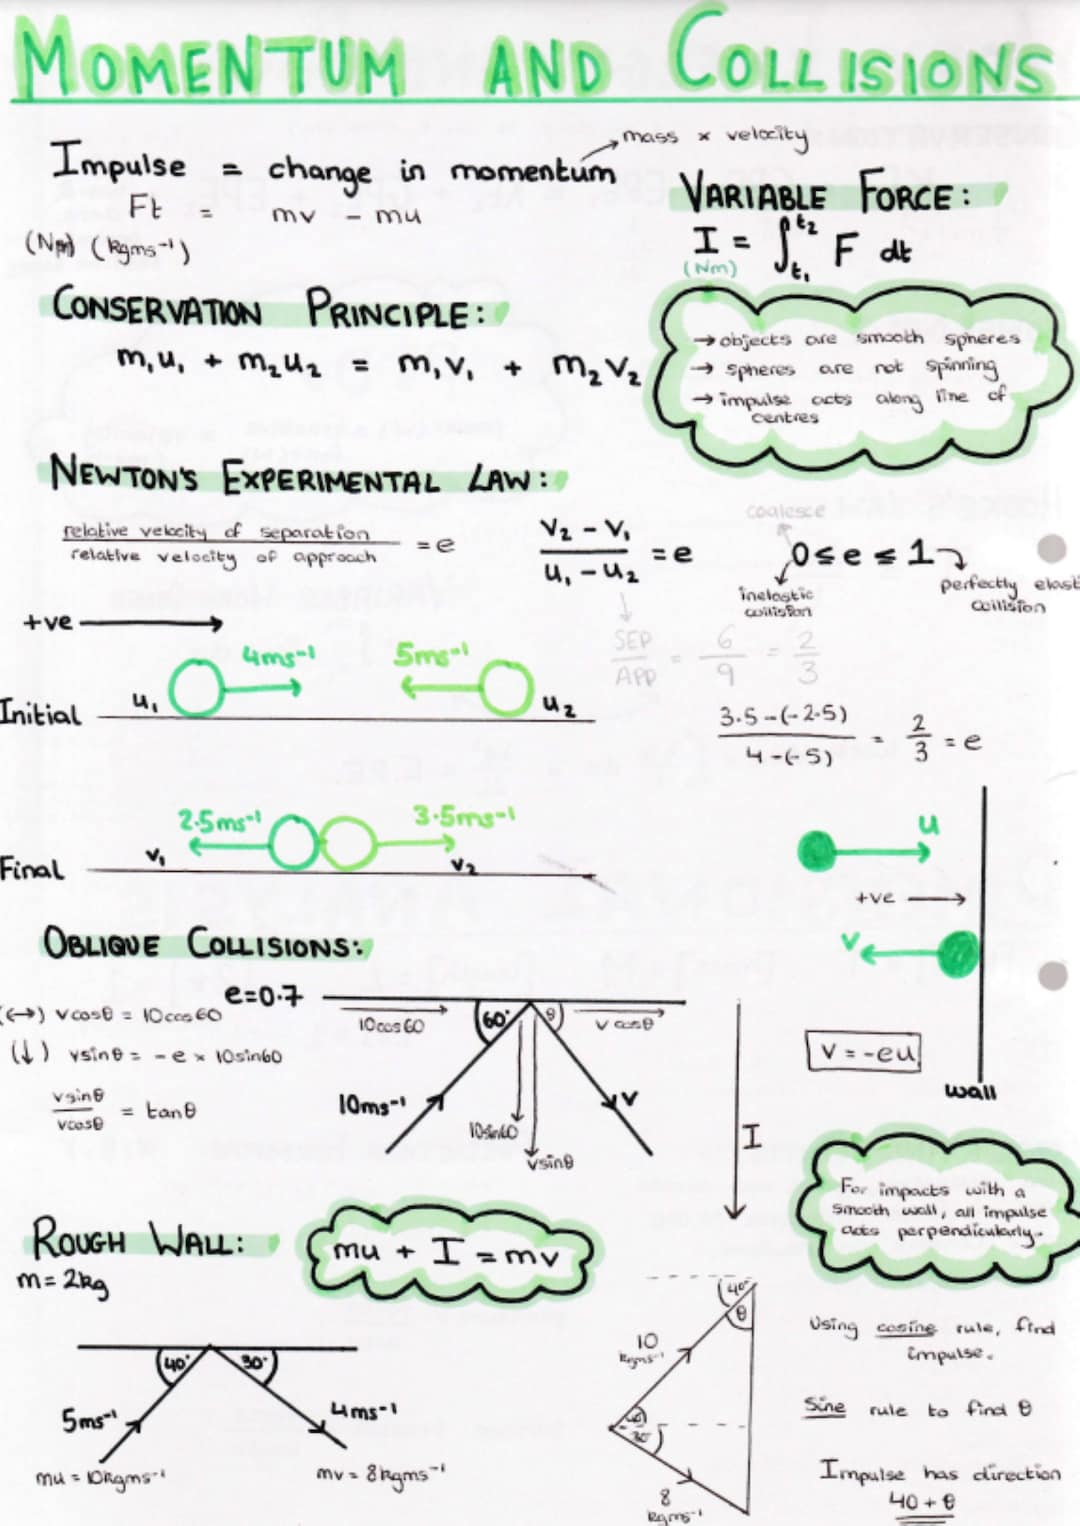 MOMENTUM AND COLLISIONS
mass × velocity
Impulse = change in momentum
Ft = mv - mu
(Nm) (kgms⁻¹)
VARIABLE FORCE:
I = ∫ₜ₁ᵗ² F dt
(Nm)
CONSERVATION PRINCIPLE:
m₁u₁ + m₂u₂ = m₁v₁ + m₂v₂
→ objects are smooth spheres
→ spheres are not spinning
→ impulse acts along line of
centres
NEWTON'S EXPERIMENTAL LAW:
relative velocity of separation
relative velocity of approach
= e
v₂ - v₁
u₁ - u₂
= e
coalesce
0 ≤ e ≤ 1
inelastic
collision
perfectly elast
collision
SEP
APP
= 6/9 = 2/3
3.5-(-2.5)
4-(-5)
= 2/3 = e
+ve
4ms⁻¹
5ms⁻¹
Initial
u₁
u₂
2.5ms⁻¹
3.5ms⁻¹
Final
v₁
v₂
u
+ve
v
v = -eu
wall
OBLIQUE COLLISIONS:
e=0.7
(↔) vcosθ = 10cos60
(↓) vsinθ = -e × 10sin60
vsinθ
vcosθ
= tanθ
10cos60
60°
θ
vcosθ
10ms⁻¹
v
10sin60
vsinθ
I
For impacts with a
smooth wall, all impulse
acts perpendicularly.
ROUGH WALL:
m = 2kg
mu + I = mv
40°
30°
5ms⁻¹
4ms⁻¹
mu = 10kgms⁻¹
mv = 8kgms⁻¹
40°
θ
10
kgms⁻¹
40
30°
8
kgms⁻¹
Using cosine rule, find
impulse.
Sine rule to find θ
Impulse has direction
40 + θ